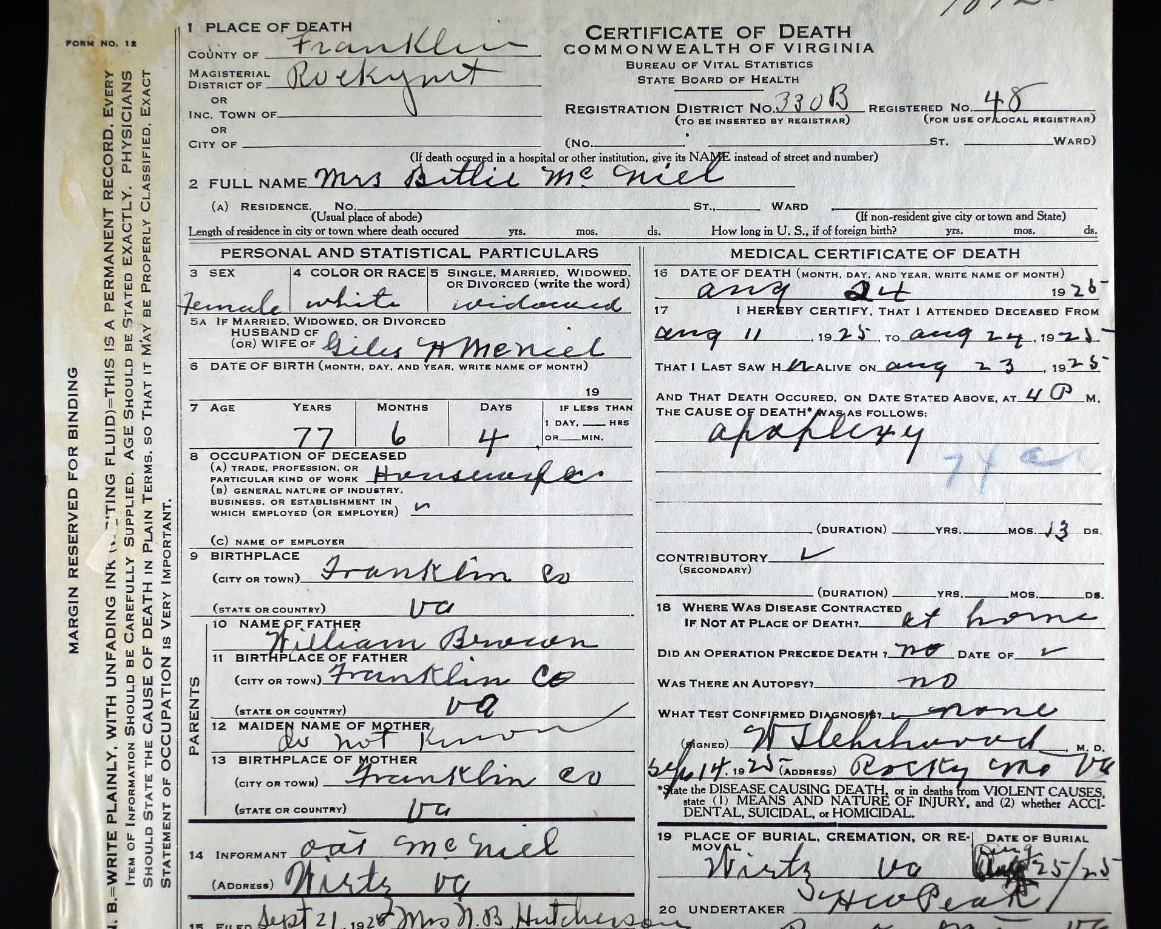 FORM NO. 12
MARGIN RESERVED FOR BINDING
N. B.=WRITE PLAINLY, WITH UNFADING INK TING FLUID)=THIS IS A PERMANENT RECORD. EVERY
ITEM OF INFORMATION SHOULD BE CAREFULLY SUPPLIED. AGE SHOULD BE STATED EXACTLY. PHYSICIANS
SHOULD STATE THE CAUSE OF DEATH IN PLAIN TERMS, SO THAT IT MAY BE PROPERLY CLASSIFIED. EXACT
STATEMENT OF OCCUPATION IS VERY IMPORTANT.
1 PLACE OF DEATH
COUNTY OF Franklin
MAGISTERIAL
DISTRICT OF Rockymt
OR
INC. TOWN OF
OR
CITY OF
CERTIFICATE OF DEATH
COMMONWEALTH OF VIRGINIA
BUREAU OF VITAL STATISTICS
STATE BOARD OF HEALTH
REGISTRATION DISTRICT NO. 330B REGISTERED NO. 48
(TO BE INSERTED BY REGISTRAR) (FOR USE OF LOCAL REGISTRAR)
(No. ST. WARD)
(If death occured in a hospital or other institution, give its NAME instead of street and number)
2 FULL NAME Mrs Bettie McNiel
(A) RESIDENCE. No. ST., WARD
(Usual place of abode) (If non-resident give city or town and State)
Length of residence in city or town where death occured yrs. mos. ds. How long in U. S., if of foreign birth? yrs. mos. ds.
PERSONAL AND STATISTICAL PARTICULARS
3 SEX 4 COLOR OR RACE 5 SINGLE, MARRIED, WIDOWED, OR DIVORCED (write the word)
Female white widowed
5A IF MARRIED, WIDOWED, OR DIVORCED
HUSBAND OF
(OR) WIFE OF Giles H McNiel
6 DATE OF BIRTH (MONTH, DAY, AND YEAR, WRITE NAME OF MONTH)
19
7 AGE YEARS MONTHS DAYS IF LESS THAN
1 DAY, HRS
77 6 4 OR MIN.
8 OCCUPATION OF DECEASED
(A) TRADE, PROFESSION, OR
PARTICULAR KIND OF WORK Housewife
(B) GENERAL NATURE OF INDUSTRY,
BUSINESS, OR ESTABLISHMENT IN
WHICH EMPLOYED (OR EMPLOYER) ✓
(C) NAME OF EMPLOYER
9 BIRTHPLACE
(CITY OR TOWN) Franklin Co
(STATE OR COUNTRY) Va
PARENTS
10 NAME OF FATHER
William Brown
11 BIRTHPLACE OF FATHER
(CITY OR TOWN) Franklin Co
(STATE OR COUNTRY) Va
12 MAIDEN NAME OF MOTHER
do not know
13 BIRTHPLACE OF MOTHER
(CITY OR TOWN) Franklin Co
(STATE OR COUNTRY) Va
14 INFORMANT McNiel
(ADDRESS) Wirtz Va
15 FILED Sept 21, 1925 Mrs N.B. Hutcherson
MEDICAL CERTIFICATE OF DEATH
16 DATE OF DEATH (MONTH, DAY, AND YEAR, WRITE NAME OF MONTH)
Aug 24 1925
17 I HEREBY CERTIFY, THAT I ATTENDED DECEASED FROM
Aug 11, 1925, TO Aug 24, 1925
THAT I LAST SAW HER ALIVE ON Aug 23, 1925
AND THAT DEATH OCCURED, ON DATE STATED ABOVE, AT 4 P M.
THE CAUSE OF DEATH* WAS AS FOLLOWS:
apoplexy
74 a
(DURATION) YRS. MOS. 13 DS.
CONTRIBUTORY ✓
(SECONDARY)
(DURATION) YRS. MOS. DS.
18 WHERE WAS DISEASE CONTRACTED
IF NOT AT PLACE OF DEATH? at home
DID AN OPERATION PRECEDE DEATH? no DATE OF ✓
WAS THERE AN AUTOPSY? no
WHAT TEST CONFIRMED DIAGNOSIS? none
(SIGNED) M. D.
Sep 14, 1925 (ADDRESS) Rocky Mt Va
*State the DISEASE CAUSING DEATH, or in deaths from VIOLENT CAUSES,
state (1) MEANS AND NATURE OF INJURY, and (2) whether ACCI-
DENTAL, SUICIDAL, or HOMICIDAL.
19 PLACE OF BURIAL, CREMATION, OR RE-
MOVAL DATE OF BURIAL
Wirtz Va Aug 25/25
20 UNDERTAKER Peak